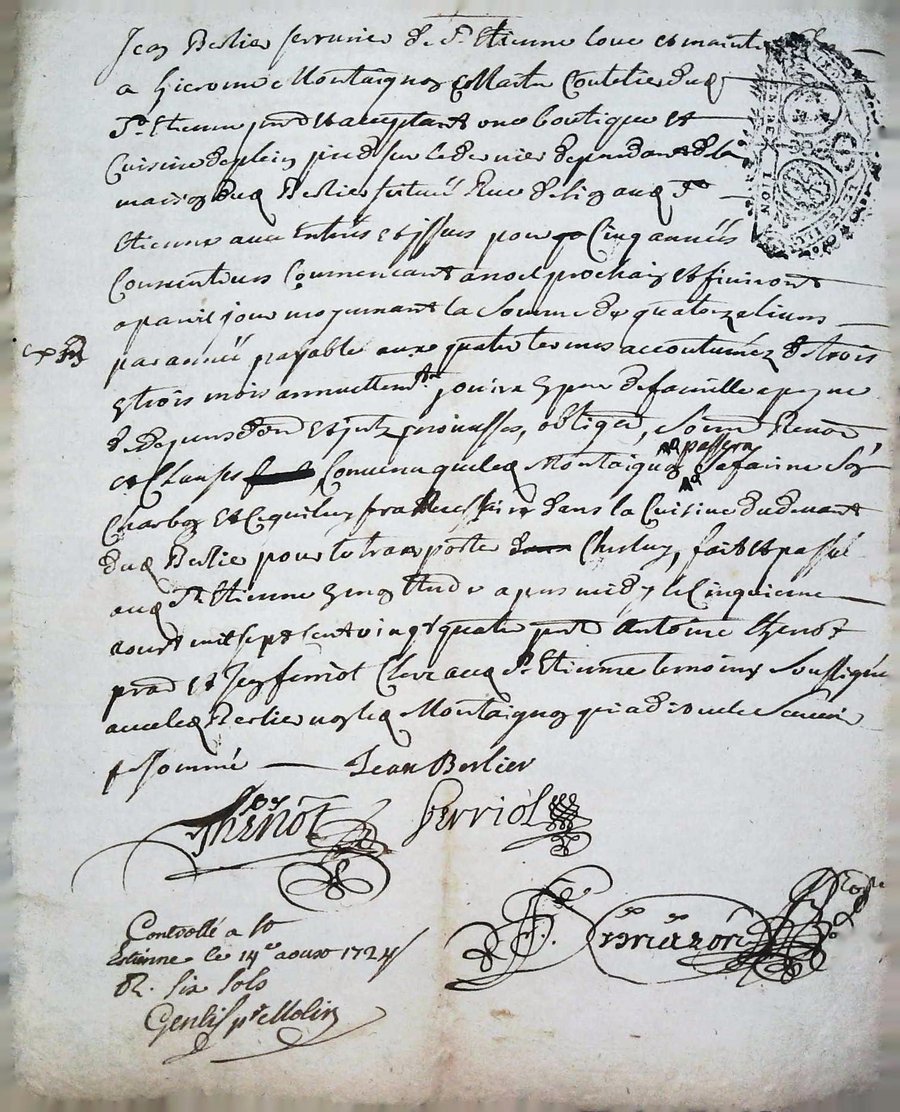 Jean Berlier serrurier de St Etienne loue et maint
a Gierome Montaignon Maitre Coutelier dud
St Etienne pnt et acceptant une boutique et
Cuisine de plein pied sur le dernier dependant de la
maison dud Berlier scituée Rue de audt St
Etienne aux Entrées et issues pour Cinq années
Consecutives Commencant a noel prochain et finiront
a pareil jour moyenant la Somme de quatorze livres
par année payable aux quatre termes accoutumez de trois
En trois mois annuellemt jouira En pere de famille a peyne
de depens dom et jnts promesses, obligaon, Soumon Renon
et Clauses Convenu que led Montaignon passera Sa farine Son
Charbon et dans la Cuisine du devant
dud Berlier pour le transporter Chez luy, fait et passé
aud St Etienne En mon Etude apres midy le Cinquieme
aoust mil sept cent vingt quatre pnts Antoine thenot
prat et Jean ferriol Clerc aud St Etienne temoins Soussignés
avec led Berlier non led Montaignon qui a dit ne le Scavoir
Sommé Jean Berlier
Thenot ferriol
Controllé a St
Estienne le 14e aoust 1724
R. six sols
Genlis pr Molin